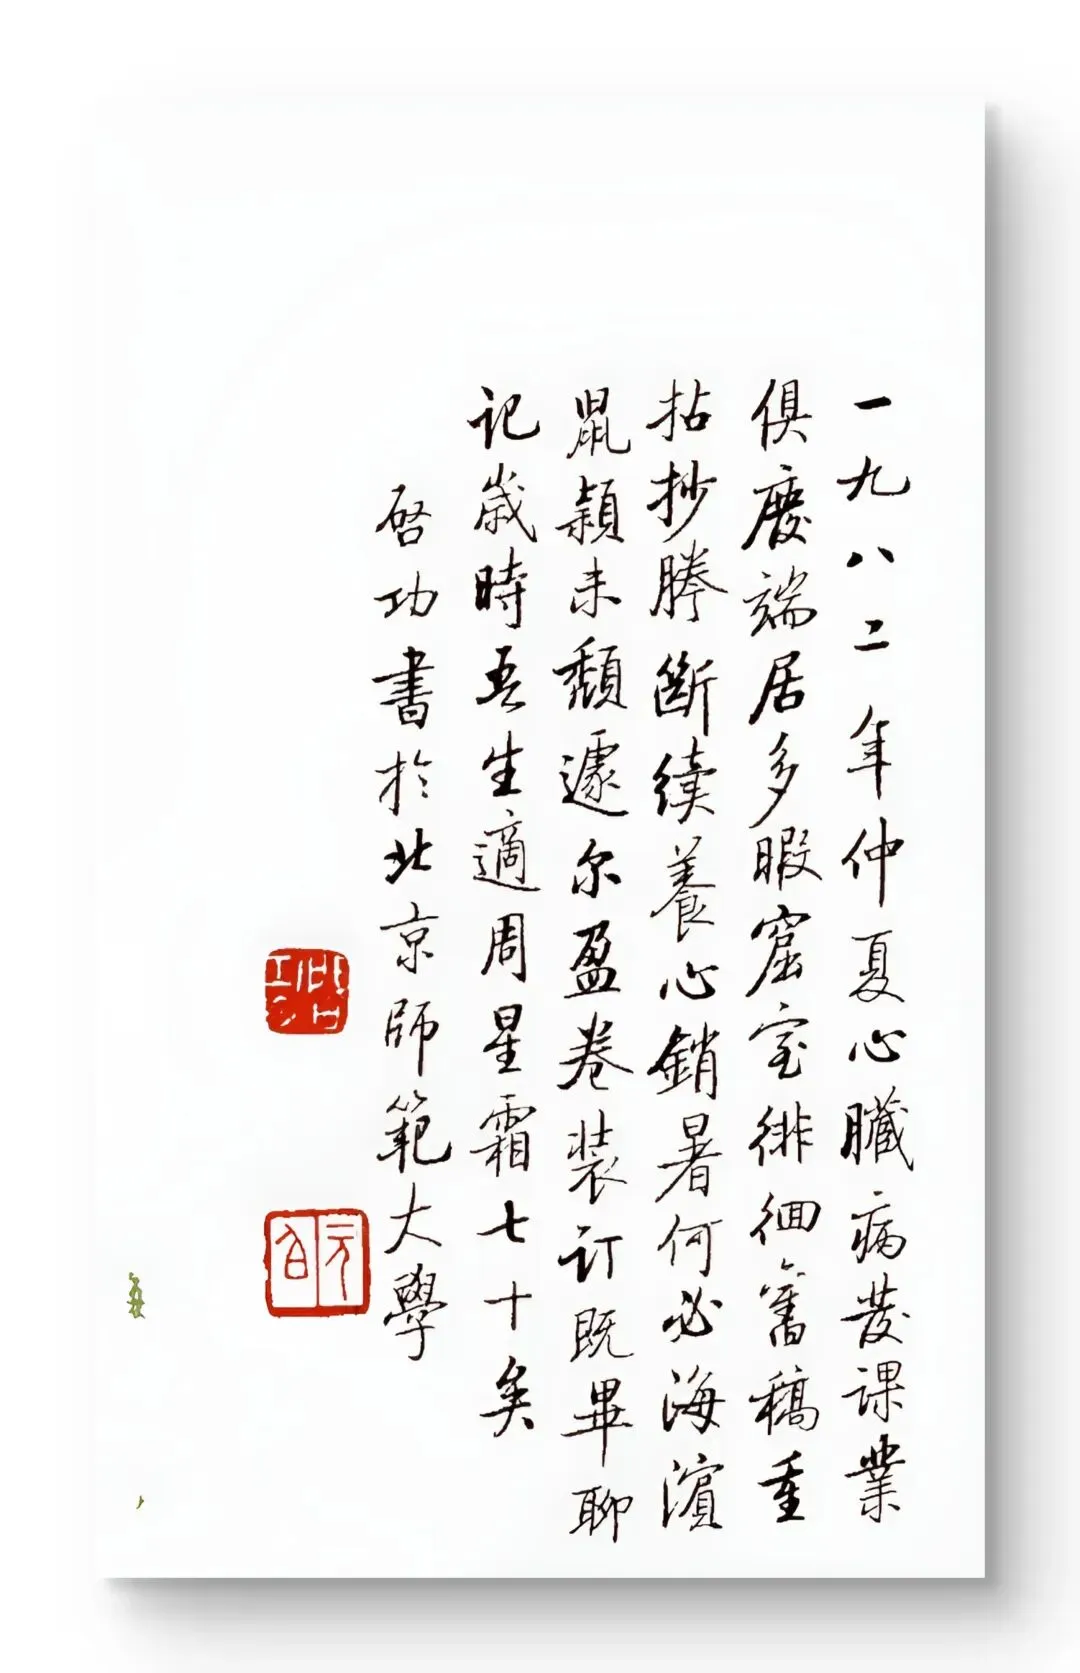 一九八二年仲夏心臟病發課業
俱廢端居多暇窟室徘徊舊稿重
拈抄謄斷續養心銷暑何必海濱
鼠穎未頹遽尔盈卷装订既畢聊
记歲時吾生適周星霜七十矣
啓功書於北京師範大學
啓功
元白